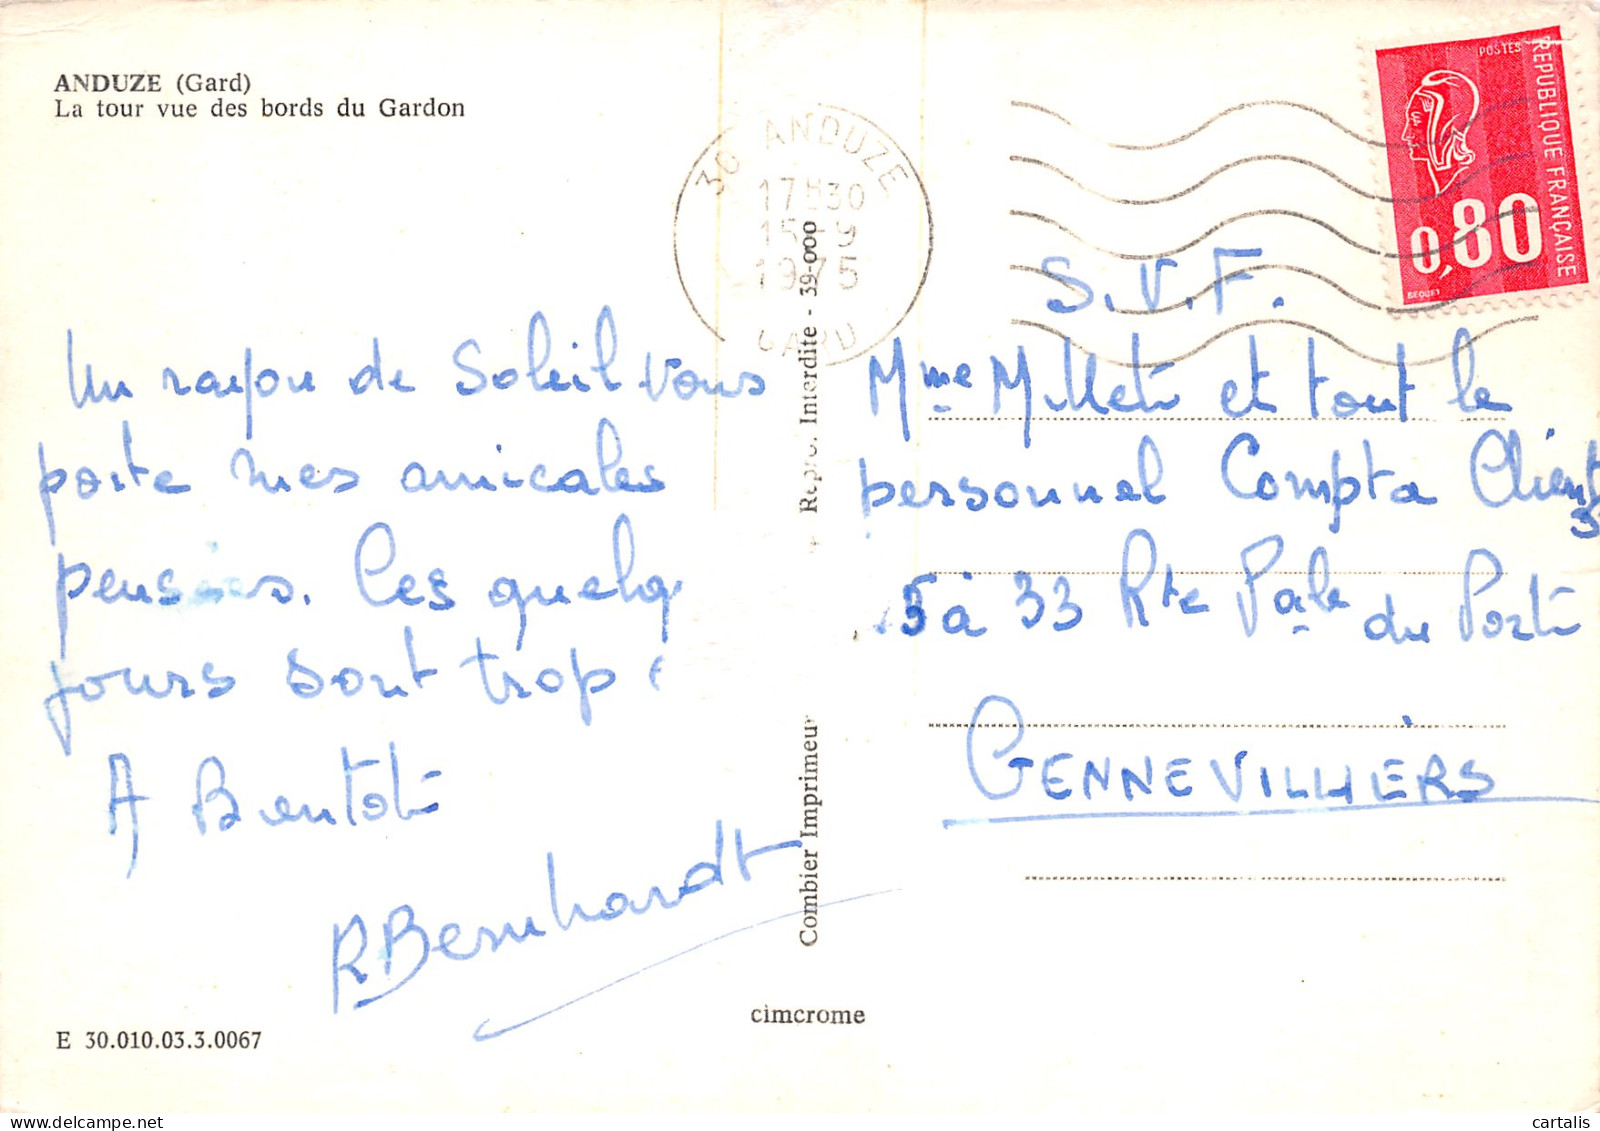 ANDUZE (Gard)
La tour vue des bords du Gardon
30 ANDUZE
17H30
15-9
1975
GARD
POSTES
REPUBLIQUE FRANÇAISE
0,80
BEQUET
Un rayon de Soleil vous
porte mes amicales
pensées. Ces quelq
jours sont trop
A Bientôt
RBernhardt
S.V.F.
Mme Millet et tout le
personnel Compta Client
5 à 33 Rte Pale du Port
GENNEVILLIERS
Combier Imprimeur
Repro. Interdite - 39-000
cimcrome
E 30.010.03.3.0067
cartalis